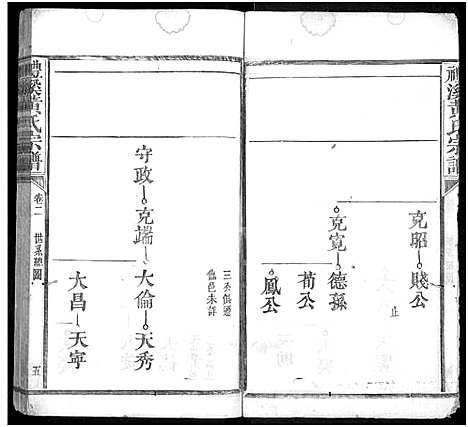 禮溪黃氏宗譜
克昭 賤公
止
克寬 德孫
荀公
鳳公
三公俱遷
他邑未詳
守政 克端 大倫 天秀
大昌 天寧
禮溪黃氏宗譜
卷二
世系總圖
五